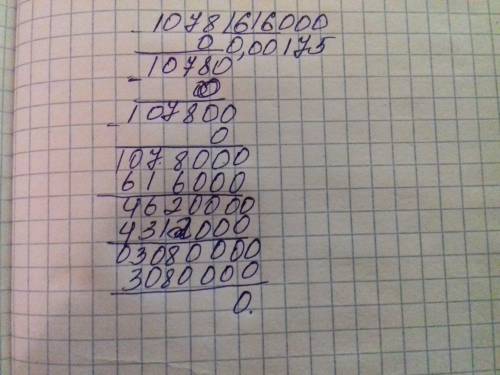 - 1078|616000
0 0,00175
- 10780
0
- 107800
0
1078000
616000
4620000
4312000
03080000
3080000
0.